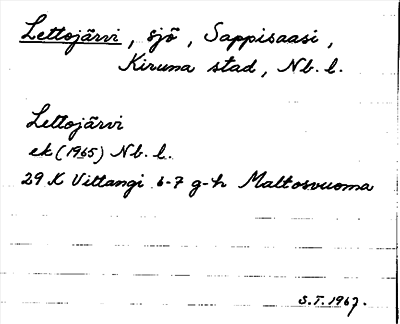 Lettojärvi, sjö, Sappisaasi,
Kiruna stad, Nb. l.
Lettojärvi
ek (1965) Nb. l.
29 K Vittangi 6-7 g-h Maltosvuoma
S.T. 1967.